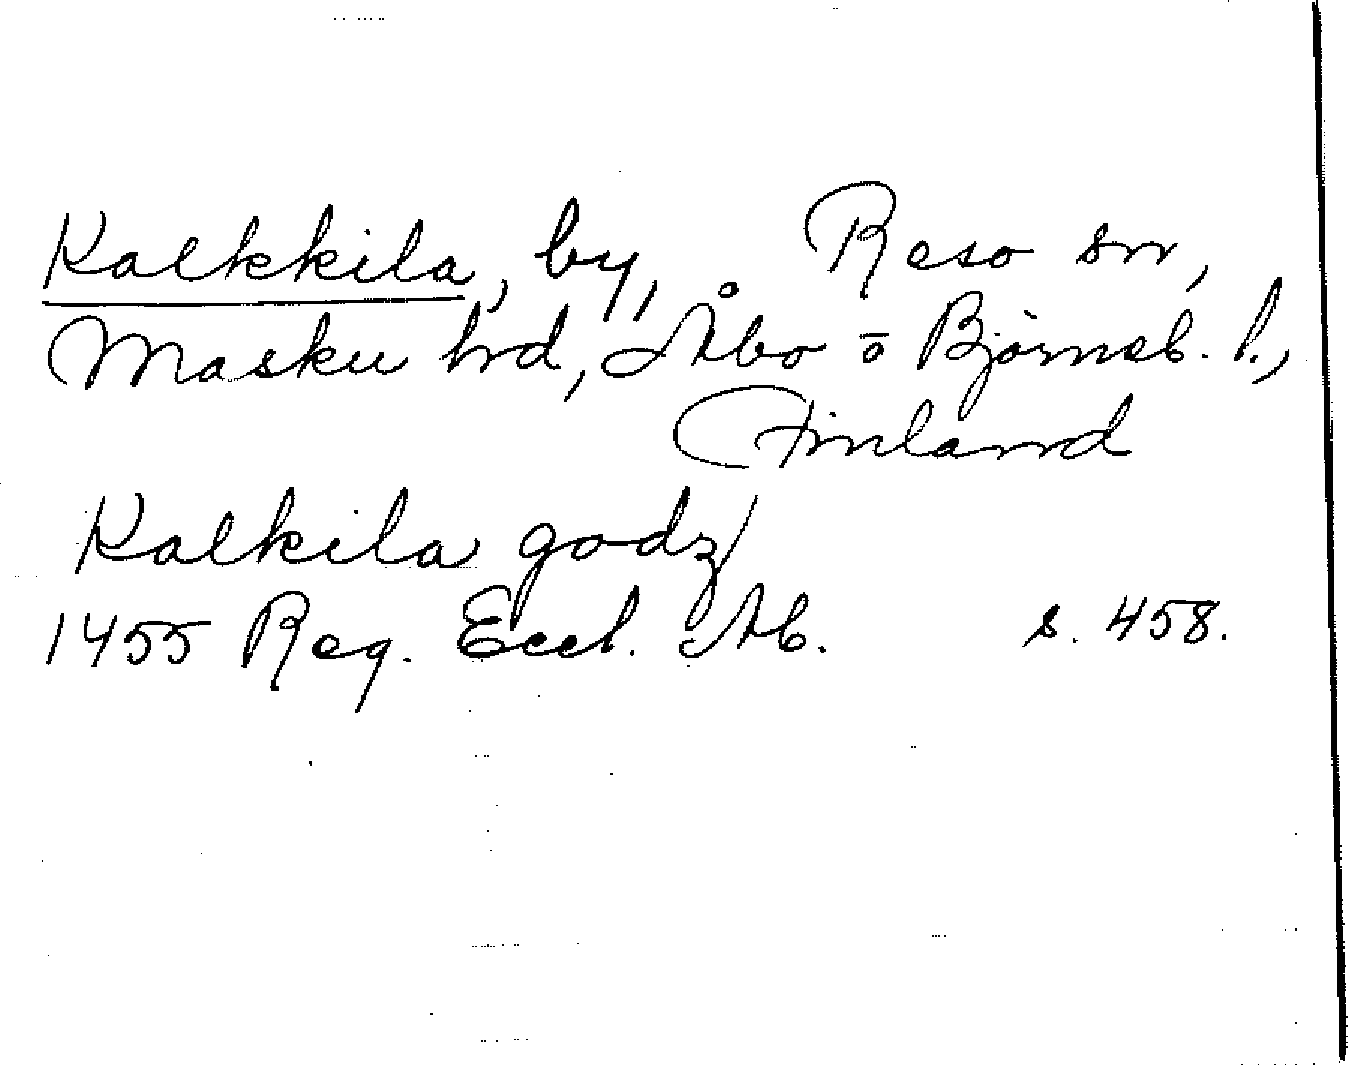 Kalkkila, by, Reso sn,
Masku hrd, Åbo o Björneb. l.,
Finland
Kalkila godz/
1455 Reg. Eccl. Ab. s. 458.